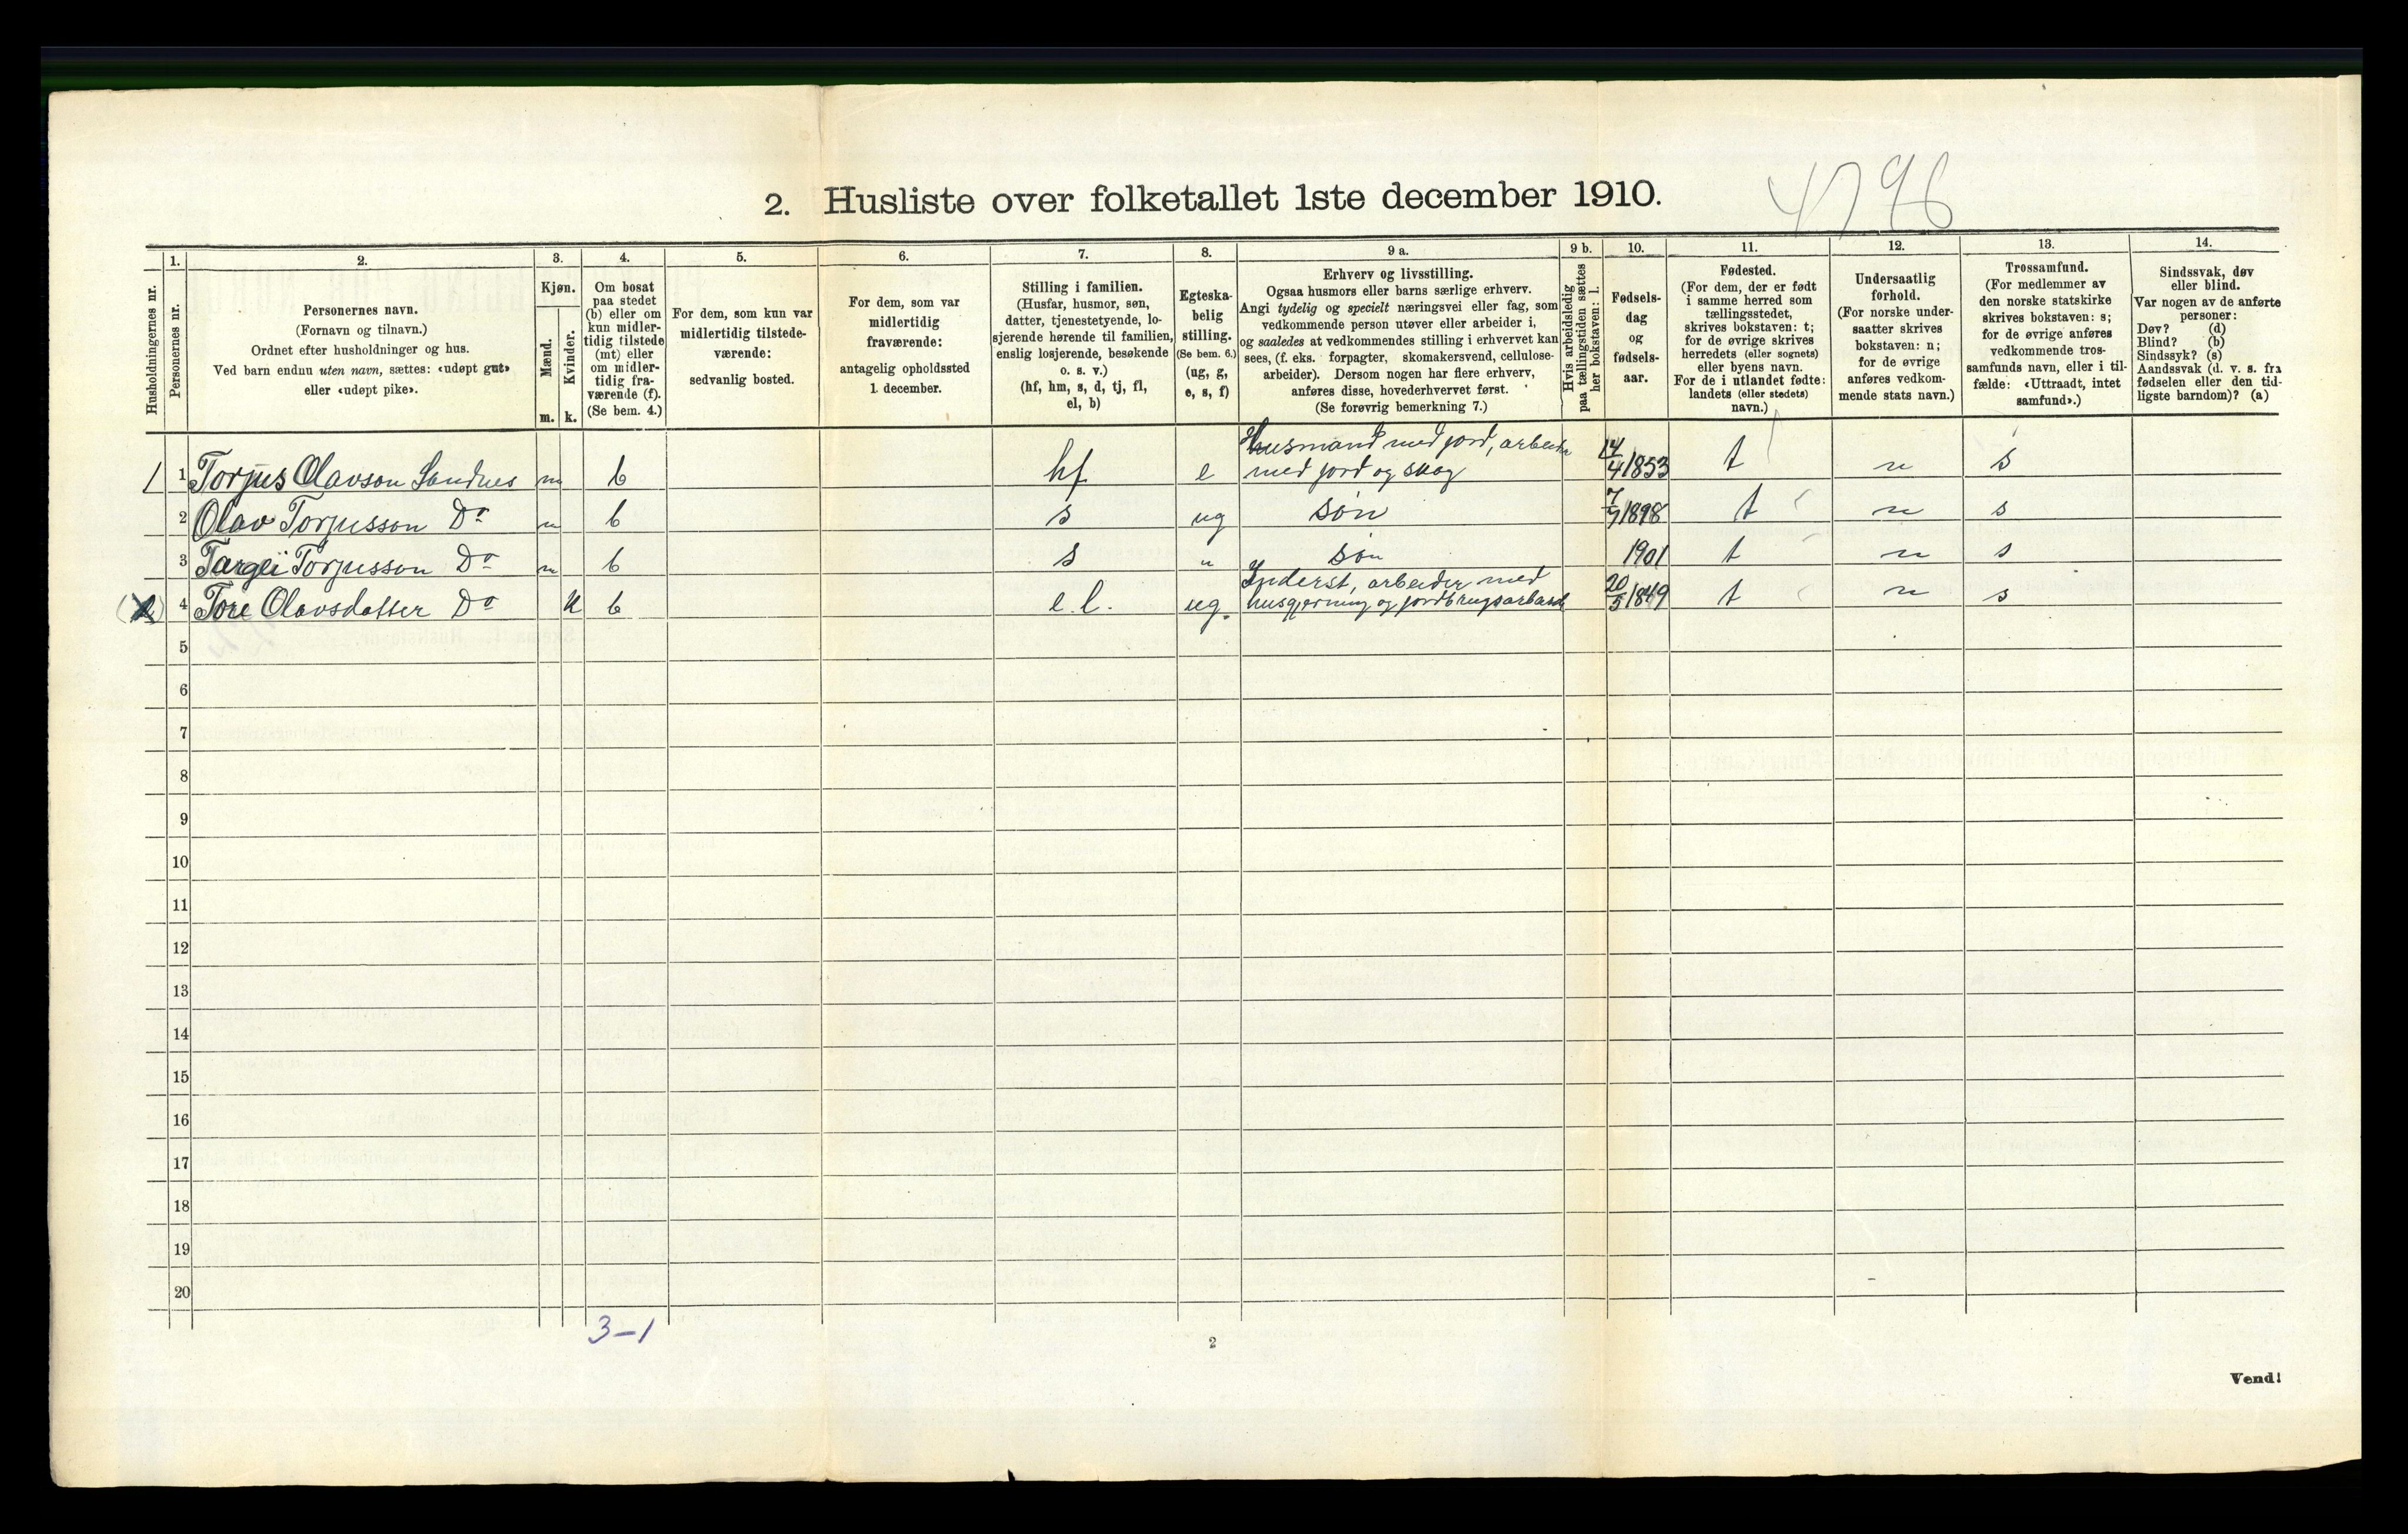 4796
2. Husliste over folketallet 1ste december 1910.
Husholdningernes nr.
1.
Personernes nr.
2.
Personernes navn.
(Fornavn og tilnavn.)
Ordnet efter husholdninger og hus.
Ved barn endnu uten navn, sættes: «udøpt gut»
eller «udøpt pike».
3.
Kjøn.
Mænd.
Kvinder.
m. k.
4.
Om bosat
paa stedet
(b) eller om
kun midler-
tidig tilstede
(mt) eller
om midler-
tidig fra-
værende (f).
(Se bem. 4.)
5.
For dem, som kun var
midlertidig tilstede-
værende:
sedvanlig bosted.
6.
For dem, som var
midlertidig
fraværende:
antagelig opholdssted
1. december.
7.
Stilling i familien.
(Husfar, husmor, søn,
datter, tjenestetyende, lo-
sjerende hørende til familien,
enslig losjerende, besøkende
o. s. v.)
(hf, hm, s, d, tj, fl,
el, b)
8.
Egteska-
belig
stilling.
(Se bem. 6.)
(ug, g,
e, s, f)
9 a.
Erhverv og livsstilling.
Ogsaa husmors eller barns særlige erhverv.
Angi tydelig og specielt næringsvei eller fag, som
vedkommende person utøver eller arbeider i,
og saaledes at vedkommendes stilling i erhvervet kan
sees, (f. eks. forpagter, skomakersvend, cellulose-
arbeider). Dersom nogen har flere erhverv,
anføres disse, hovederhvervet først.
(Se forøvrig bemerkning 7.)
9 b.
Hvis arbeidsledig
paa tællingstiden sættes
her bokstaven: l.
10.
Fødsels-
dag
og
fødsels-
aar.
11.
Fødested.
(For dem, der er født
i samme herred som
tællingsstedet,
skrives bokstaven: t;
for de øvrige skrives
herredets (eller sognets)
eller byens navn.
For de i utlandet fødte:
landets (eller stedets)
navn.)
12.
Undersaatlig
forhold.
(For norske under-
saatter skrives
bokstaven: n;
for de øvrige
anføres vedkom-
mende stats navn.)
13.
Trossamfund.
(For medlemmer av
den norske statskirke
skrives bokstaven: s;
for de øvrige anføres
vedkommende tros-
samfunds navn, eller i til-
fælde: «Uttraadt, intet
samfund».)
14.
Sindssvak, døv
eller blind.
Var nogen av de anførte
personer:
Døv? (d)
Blind? (b)
Sindssyk? (s)
Aandssvak (d. v. s. fra
fødselen eller den tid-
ligste barndom)? (a)
1 1 Torjus Olavson Sandnes m b hf e Husmand med jord, arbeider
med jord og skog 14/4 1853 t n s
2 Olav Torjusson Do m b s ug søn 7/7 1898 t n s
3 Targei Torjusson Do m b s " søn 1901 t n s
4 Tore Olavsdatter Do k b e.l. ug. Inderst, arbeider med
husgjerning og jordbrugsarbeide 20/5 1849 t n s
5
6
7
8
9
10
11
12
13
14
15
16
17
18
19
20
3-1
2
Vend!